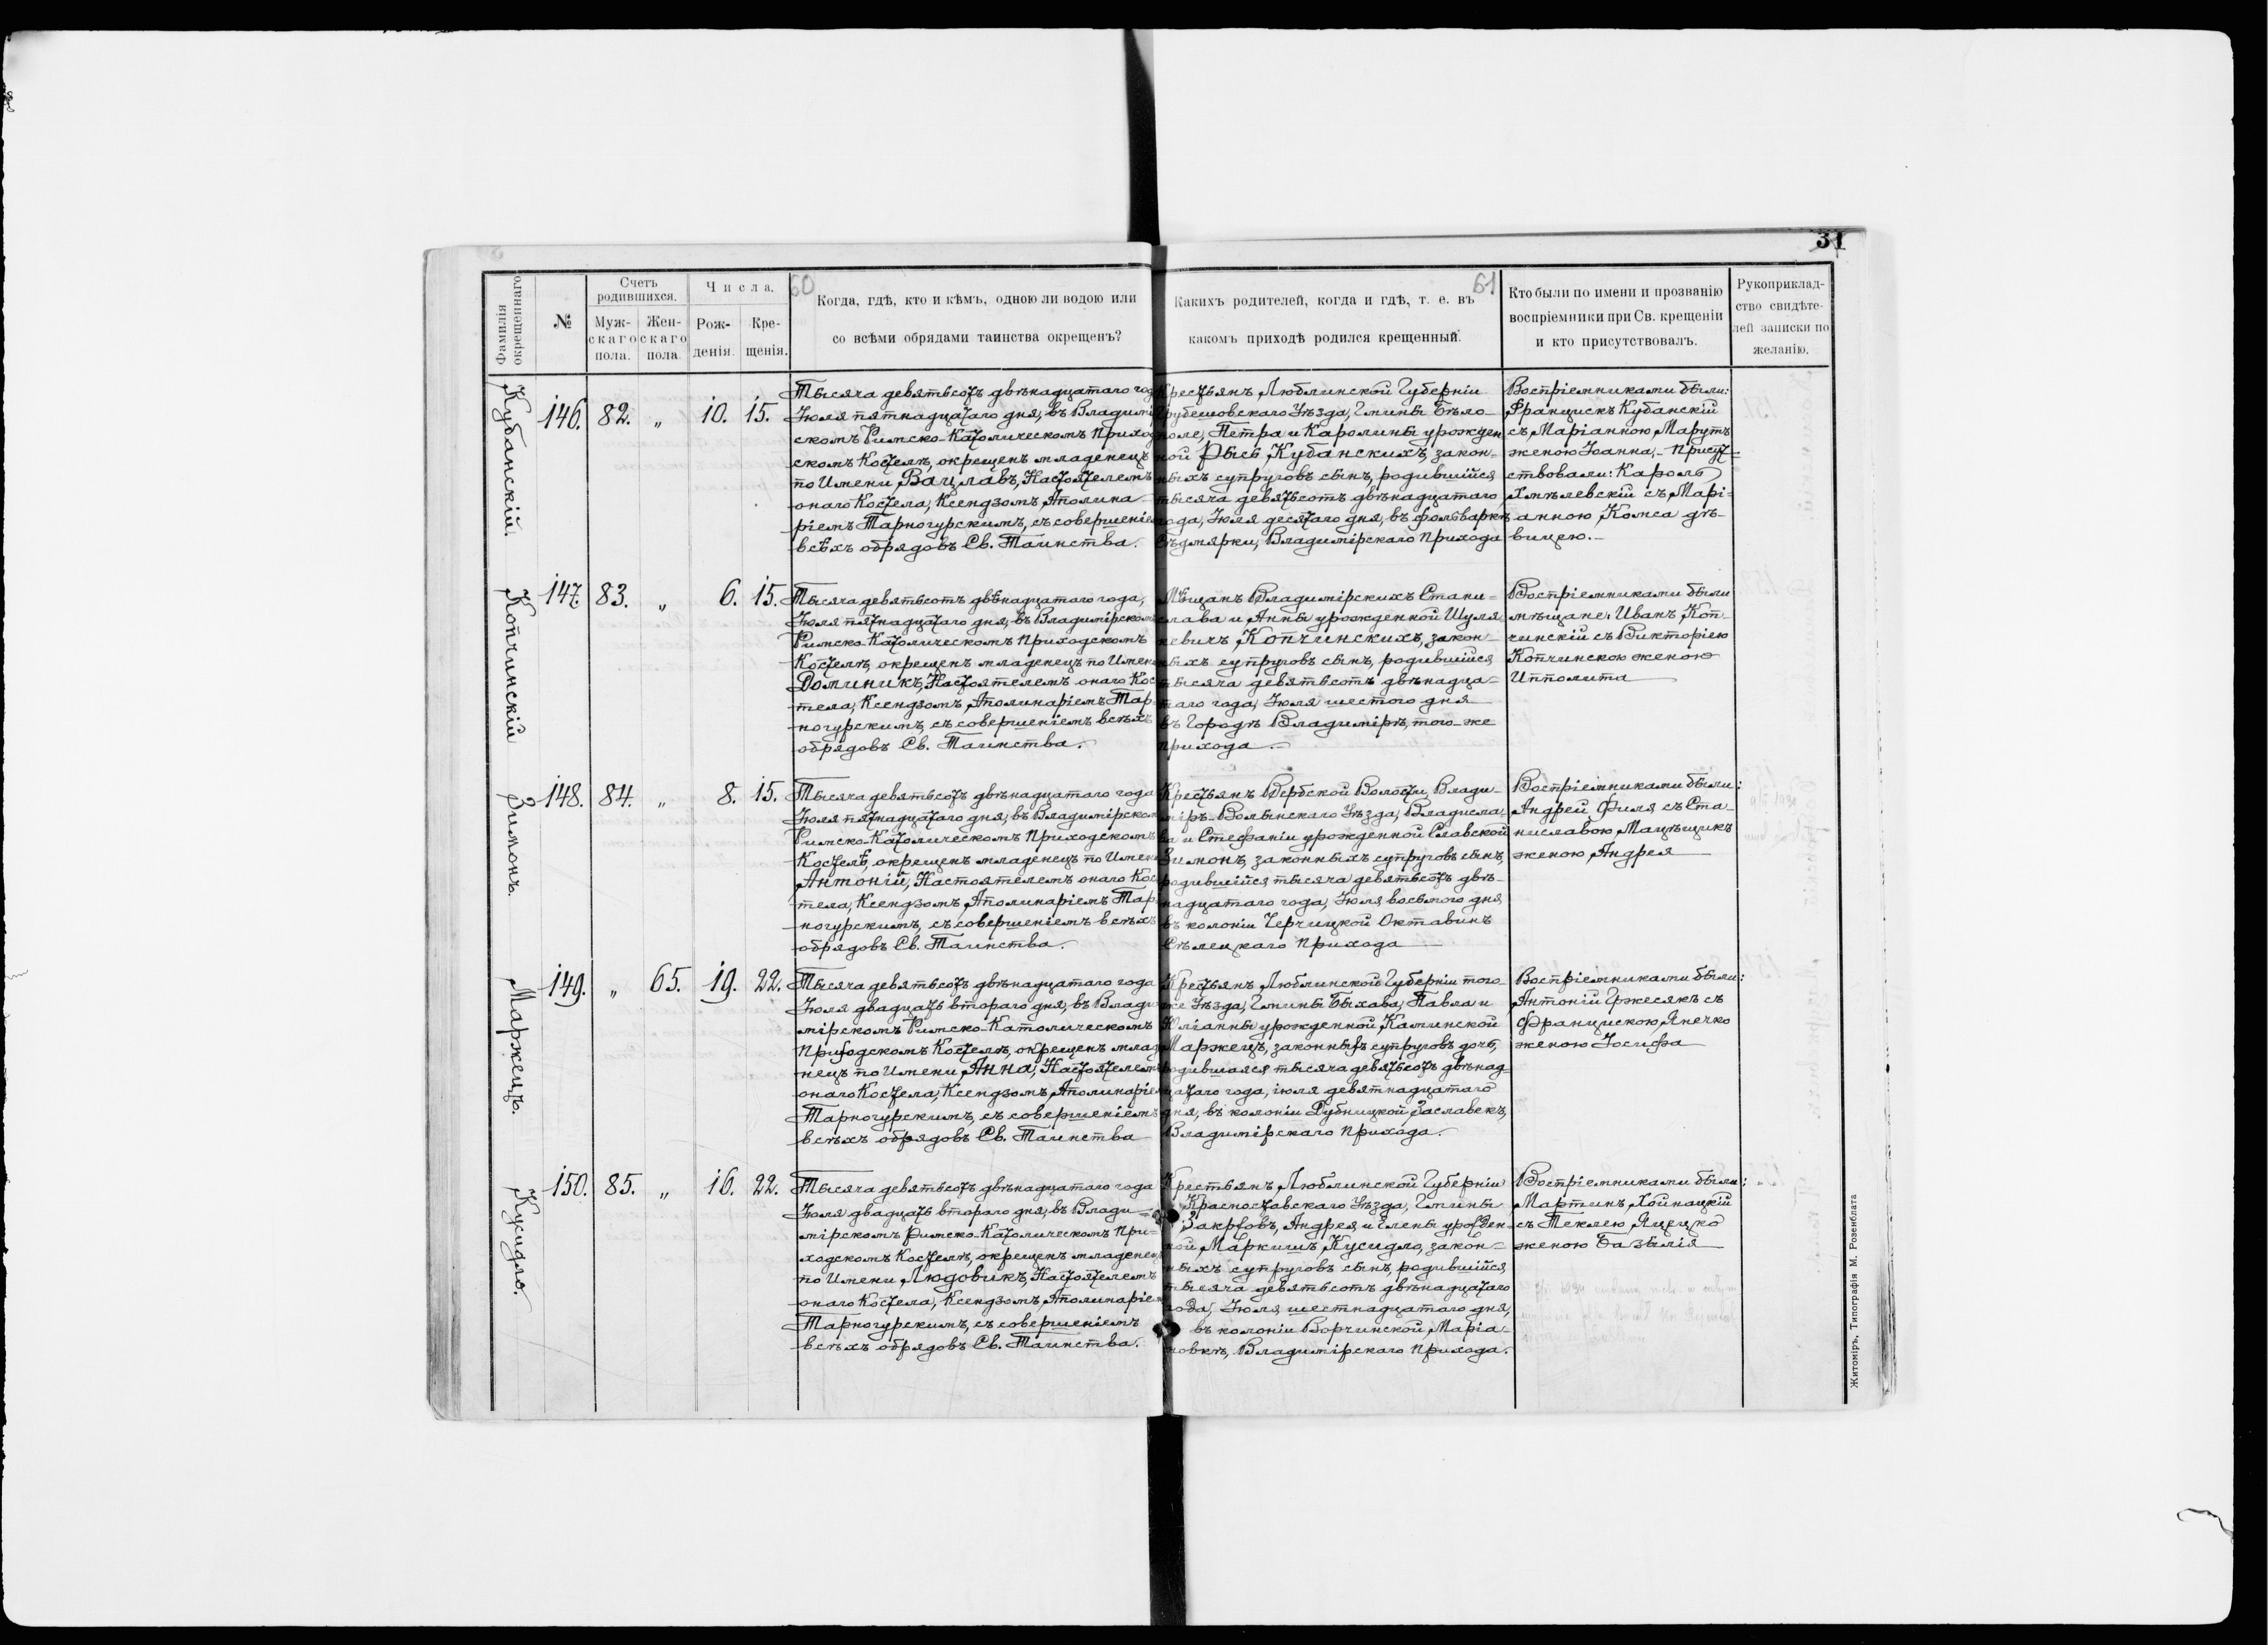 31
60
61
Фамилія окрещеннаго
№
Счетъ родившихся.
Муж-скаго пола.
Жен-скаго пола.
Числа.
Рож-денія.
Кре-щенія.
Когда, гдѣ, кто и кѣмъ, одною ли водою или
со всѣми обрядами таинства окрещенъ?
Какихъ родителей, когда и гдѣ, т. е. въ
какомъ приходѣ родился крещенный.
Кто были по имени и прозванію
воспріемники при Св. крещеніи
и кто присутствовалъ.
Рукоприклад-
ство свидѣте-
лей записки по
желанію.
Кубанскій.
146. 82. „ 10. 15.
Тысяча девятьсотъ двѣнадцатаго год
Іюля пятнадцатаго дня, въ Владимі
скомъ Римско-Католическомъ Приход
скомъ Костелѣ, окрещенъ младенецъ
по Имени Вацлавъ, Настоятелемъ
онаго Костела, Ксендзомъ Аполина-
ріемъ Тарногурскимъ, съ совершеніе
всѣхъ обрядовъ Св. Таинства.
Крестьянъ Люблинской Губерніи
Грубешовскаго Уѣзда, Гмины Бѣло-
поле, Петра и Каролины урожден
ной Рысь Кубанскихъ, закон-
ныхъ супруговъ сынъ, родившійся
тысяча девятьсотъ двѣнадцатаго
года, Іюля десятаго дня, въ фольваркѣ
Съдмярки, Владимірскаго Прихода
Воспріемниками были:
Францискъ Кубанскій
съ Маріанною Марутъ
женою Іоанна,- Присут-
ствовали: Кароль
Хмѣлевскій съ Марі-
анною Комса дѣ-
вицею.-
Копчинскій
147. 83. „ 6. 15.
Тысяча девятьсотъ двѣнадцатаго года,
Іюля пятнадцатаго дня, въ Владимірском
Римско-Католическомъ Приходскомъ
Костелѣ, окрещенъ младенецъ по Имен
Доминикъ, Настоятелемъ онаго Кос
тела, Ксендзомъ Аполинаріемъ Тар
ногурскимъ, съ совершеніемъ всѣхъ
обрядовъ Св. Таинства.
Мѣщанъ Владимірскихъ Стани-
слава и Анны урожденной Шуля
кевичъ Копчинскихъ, закон-
ныхъ супруговъ сынъ, родившійся
тысяча девятьсотъ двѣнадца-
таго года, Іюля шестого дня
въ Городѣ Владимірѣ, того-же
прихода.-
Воспріемниками были
мѣщане: Иванъ Коп-
чинскій съ Викторіею
Копчинскою женою
Ипполита
Зимонъ.
148. 84. „ 8. 15.
Тысяча девятьсотъ двѣнадцатаго года
Іюля пятнадцатаго дня, въ Владимірском
Римско-Католическомъ Приходскомъ
Костелѣ, окрещенъ младенецъ по Имен
Антоній, Настоятелемъ онаго Кос
тела, Ксендзомъ Аполинаріемъ Тар
ногурскимъ, съ совершеніемъ всѣхъ
обрядовъ Св. Таинства.
Крестьянъ Вербской Волости, Влади-
міръ-Волынскаго Уѣзда, Владисла-
ва и Стефаніи урожденной Славской
Зимонъ, законныхъ супруговъ сынъ,
родившійся тысяча девятьсотъ двѣ-
надцатаго года, Іюля восьмого дня
въ колоніи Черчицкой Октавинъ
Сѣлецкаго Прихода
Воспріемниками были:
Андрей Филя съ Ста-
ниславою Мацѣщикъ
женою Андрея
Маржецъ.
149. „ 65. 19. 22.
Тысяча девятьсотъ двѣнадцатаго года
Іюля двадцать второго дня, въ Влади
мірскомъ Римско-Католическомъ
Приходскомъ Костелѣ, окрещенъ млад
нецъ по Имени Анна, Настоятелем
онаго Костела, Ксендзомъ Аполинаріе
Тарногурскимъ, съ совершеніемъ
всѣхъ обрядовъ Св. Таинства
Крестьянъ Люблинской Губерніи того-
же Уѣзда, Гмины Быхава, Павла и
Юліанны урожденной Каминской
Маржецъ, законныхъ супруговъ дочь,
родившаяся тысяча девятьсотъ двѣнад-
цатаго года, іюля девятнадцатаго
дня, въ колоніи Дубницкой Заславекъ,
Владимірскаго Прихода.
Воспріемниками были:
Антоній Гржесякъ съ
Францискою Янечко
женою Іосифа
Кусидло.
150. 85. „ 16. 22.
Тысяча девятьсотъ двѣнадцатаго года
Іюля двадцать второго дня, въ Влади-
мірскомъ Римско-Католическомъ При-
ходскомъ Костелѣ, окрещенъ младенец
по Имени Людовикъ, Настоятелемъ
онаго Костела, Ксендзомъ Аполинаріем
Тарногурскимъ, съ совершеніемъ
всѣхъ обрядовъ Св. Таинства.
Крестьянъ Люблинской Губерніи
Красноставскаго Уѣзда, Гмины
Андрея и Елены урожден-
ной Маркишъ, Кусидло, закон-
ныхъ супруговъ сынъ, родившійся
тысяча девятьсотъ двѣнадцатаго
года, Іюля шестнадцатаго дня,
въ колоніи Ворчинской Маріа-
новкѣ, Владимірскаго Прихода.
Воспріемниками были:
Мартинъ Хойнацкій
съ Теклею Яцецко
женою Базылія
Житоміръ, Типографія М. Розенблата